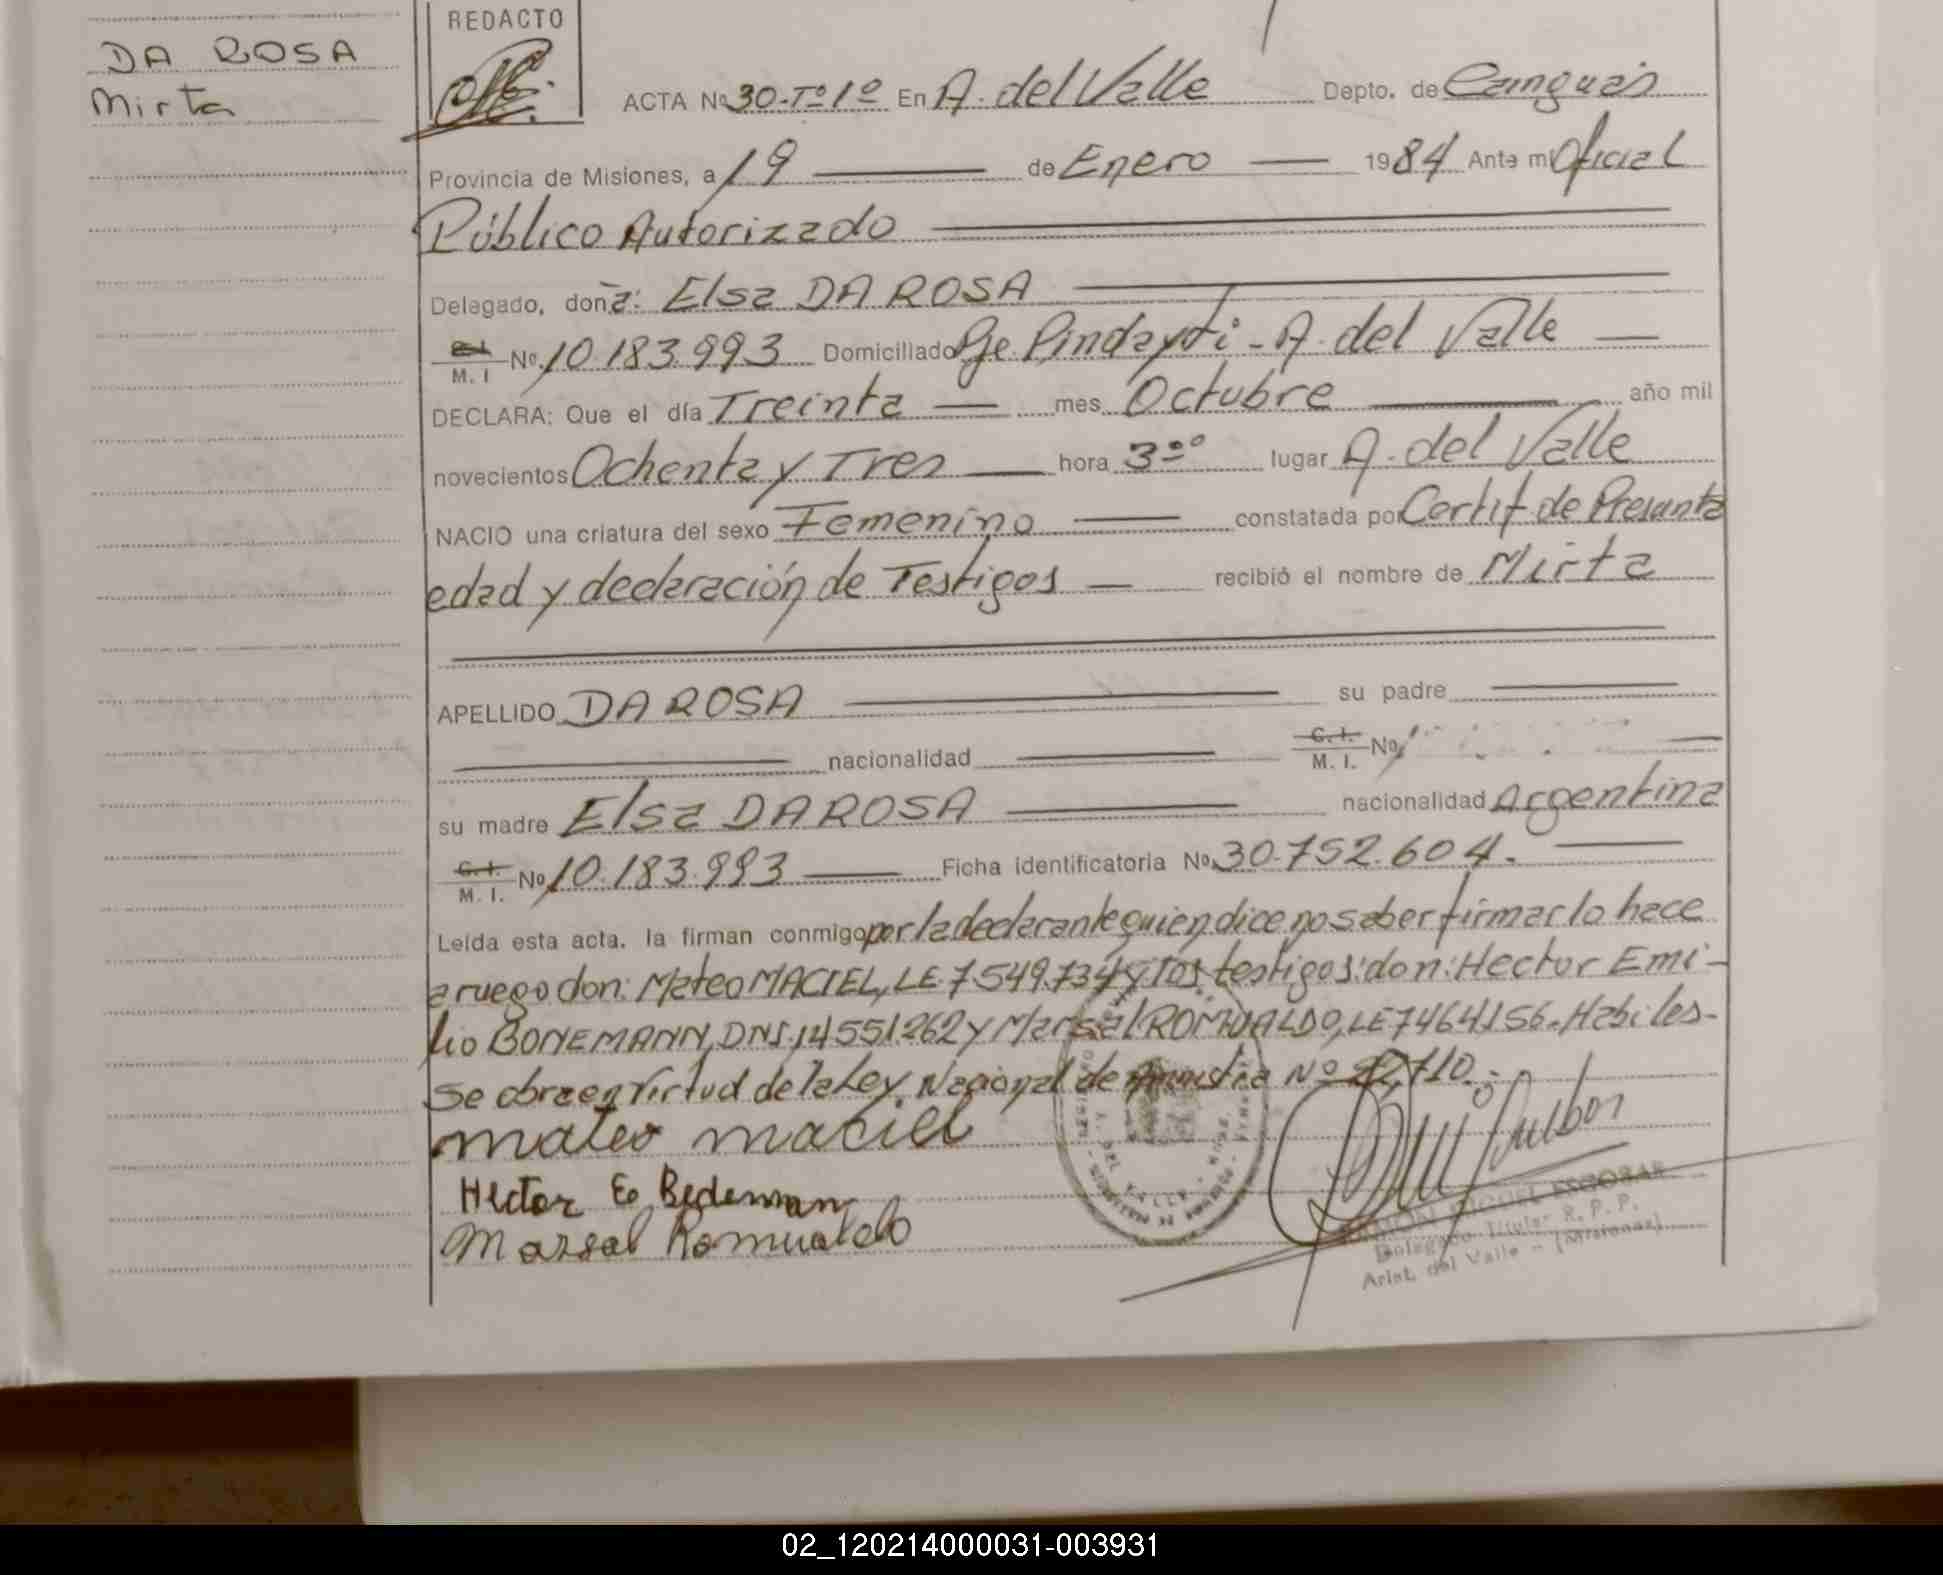 DA ROSA
Mirta
REDACTO
ACTA Nº 30-Tº 1º En A. del Valle Depto. de Cainguás
Provincia de Misiones, a 19 de Enero 1984 Ante mi Oficial
Público Autorizado
Delegado, doña: Elsa DA ROSA
C.I. M. I Nº 10.183.993 Domiciliado Pje. Pindaytí - A. del Valle
DECLARA: Que el día Treinta mes Octubre año mil
novecientos Ochenta y Tres hora 3ºº lugar A. del Valle
NACIO una criatura del sexo Femenino constatada por Certif de Presunta
edad y declaración de Testigos recibió el nombre de Mirta
APELLIDO DA ROSA su padre
nacionalidad C. I. M. I. Nº
su madre Elsa DA ROSA nacionalidad Argentina
C. I. M. I. Nº 10.183.993 Ficha identificatoria Nº 30.752.604.
Leída esta acta. la firman conmigo por la declarante quien dice no saber firmar lo hace
a ruego don: Mateo MACIEL, LE 7.549.734 y los testigos: don: Hector Emi-
lio BONEMANN, DNI. 14551.262 y Marsal ROMUALDO, LE 7464156. Habiles-
Se obra en Virtud de la Ley Nacional de Amnistia Nº 22,710.-
mateo maciel
Hector E. 
Marsal Romualdo
RAMON MIGUEL ESCOBAR
Delegado Titular R. P. P.
Arist. del Valle - (Misiones)
02_120214000031-003931